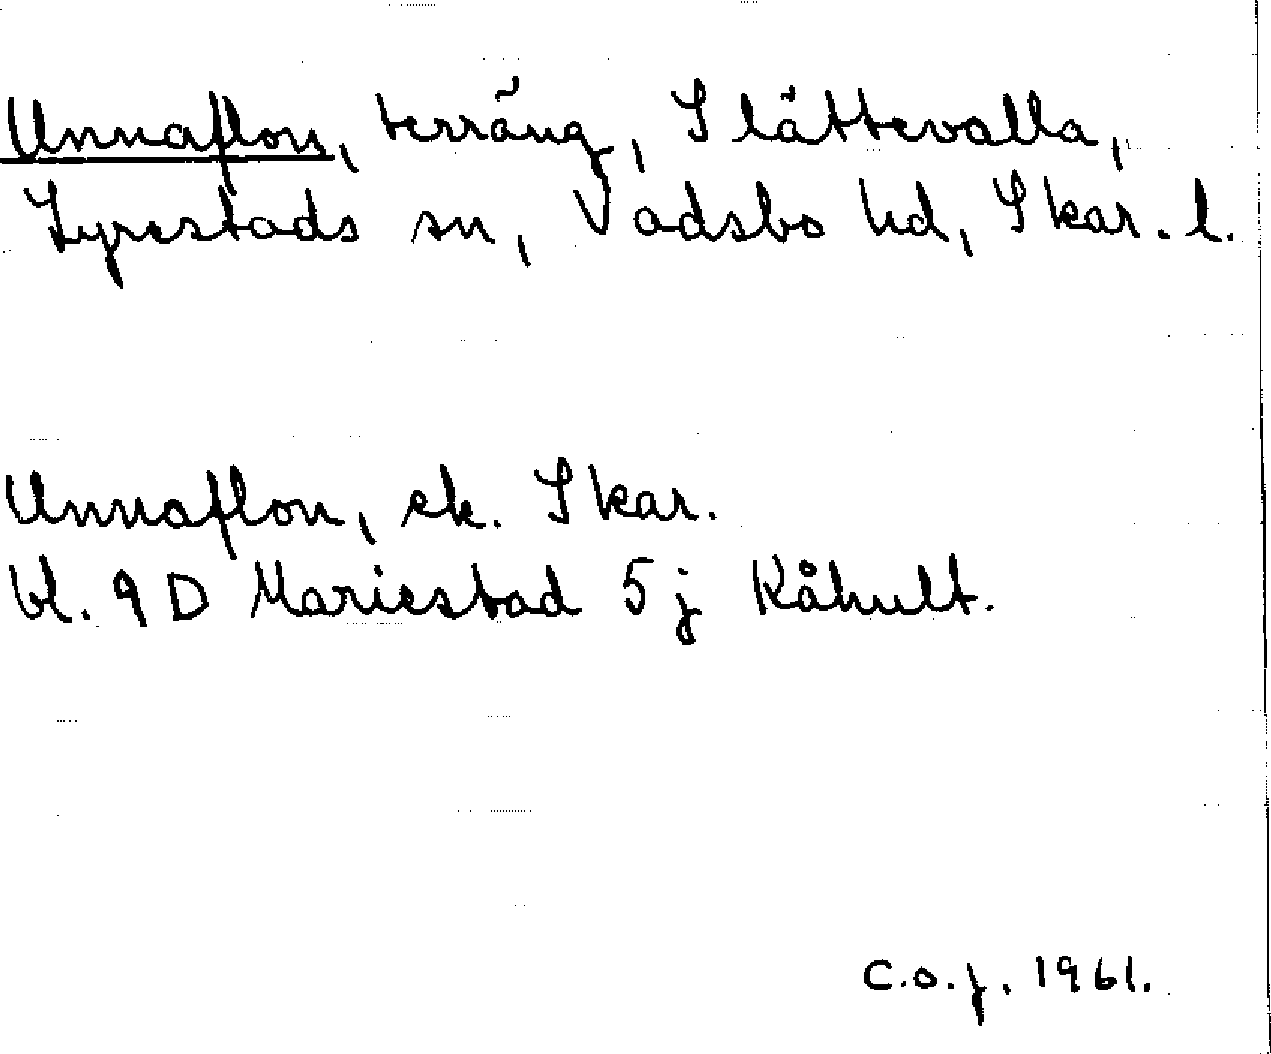 Unnaflon, terräng, Slättevalla,
Lyrestads sn, Vadsbo hd, Skar. l.
Unnaflon, ek. Skar.
bl. 9 D Mariestad 5 j Kåhult.
C.o.f. 1961.